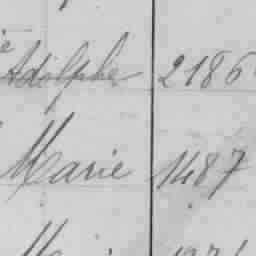 Adolphe 2186
Marie 1487